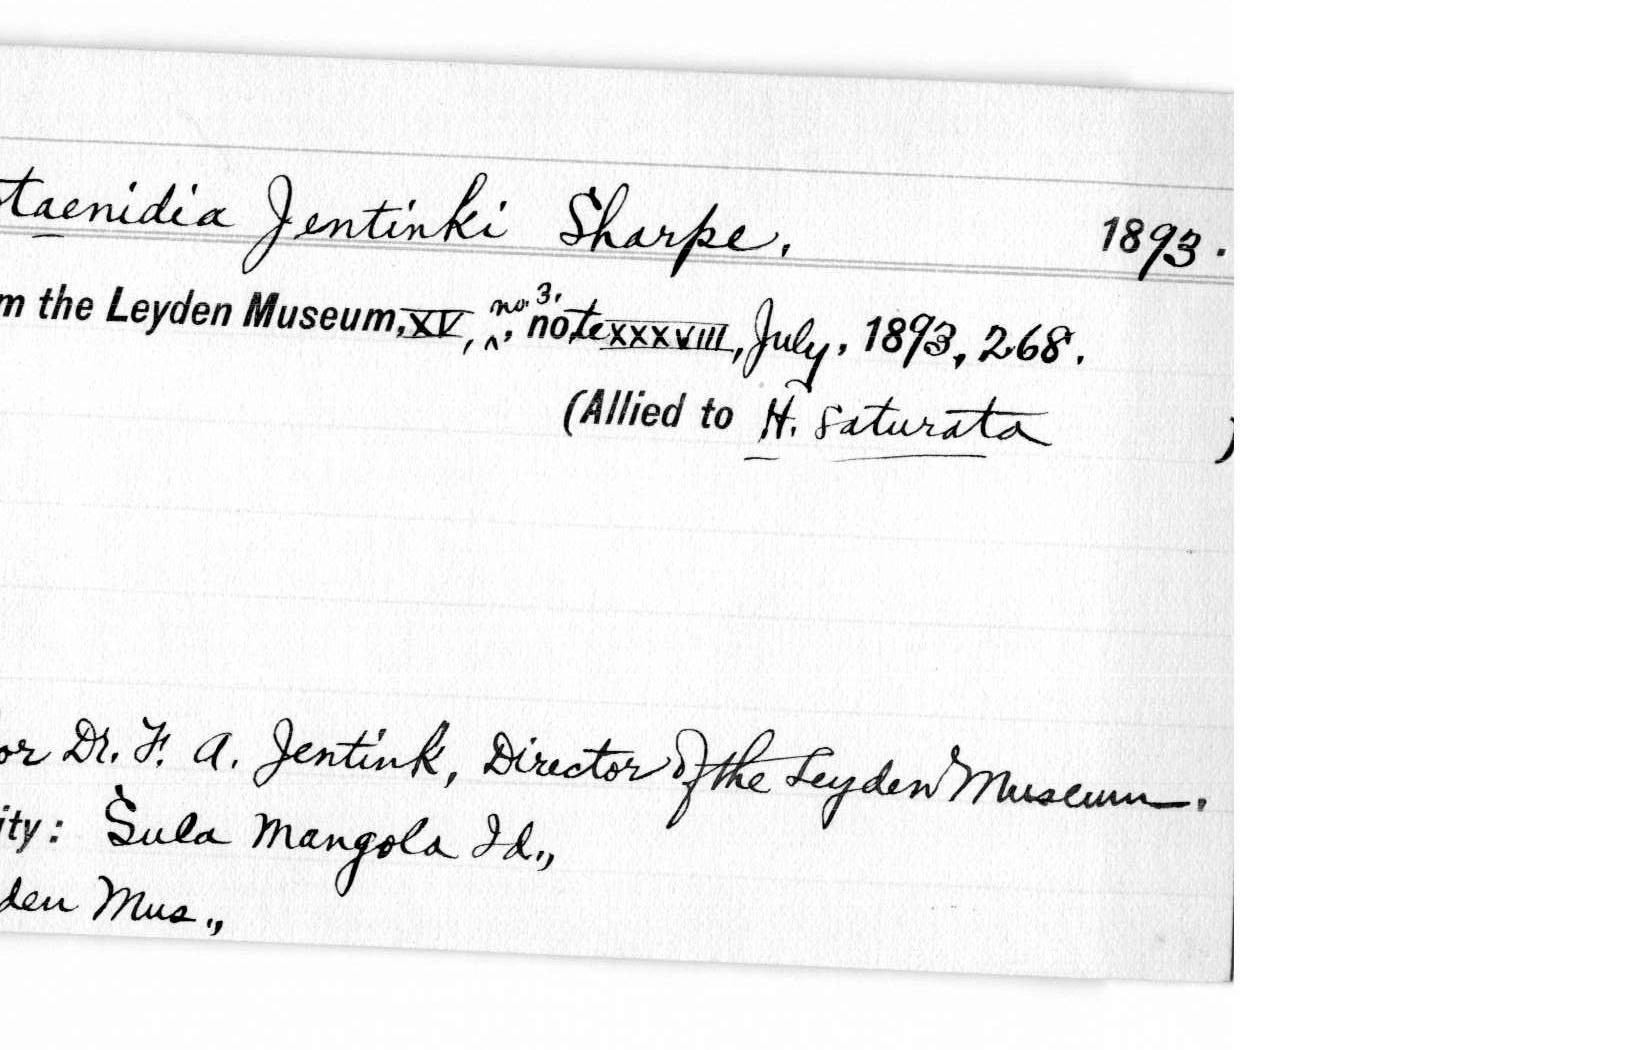 taenidia Jentinki Sharpe. 1893.
m the Leyden Museum, XV, no. 3, note XXXVIII, July, 1893, 268.
(Allied to H. saturata )
or Dr. F. A. Jentink, Director of the Leyden Museum.
ity: Sula Mangola Id.,
den Mus.,